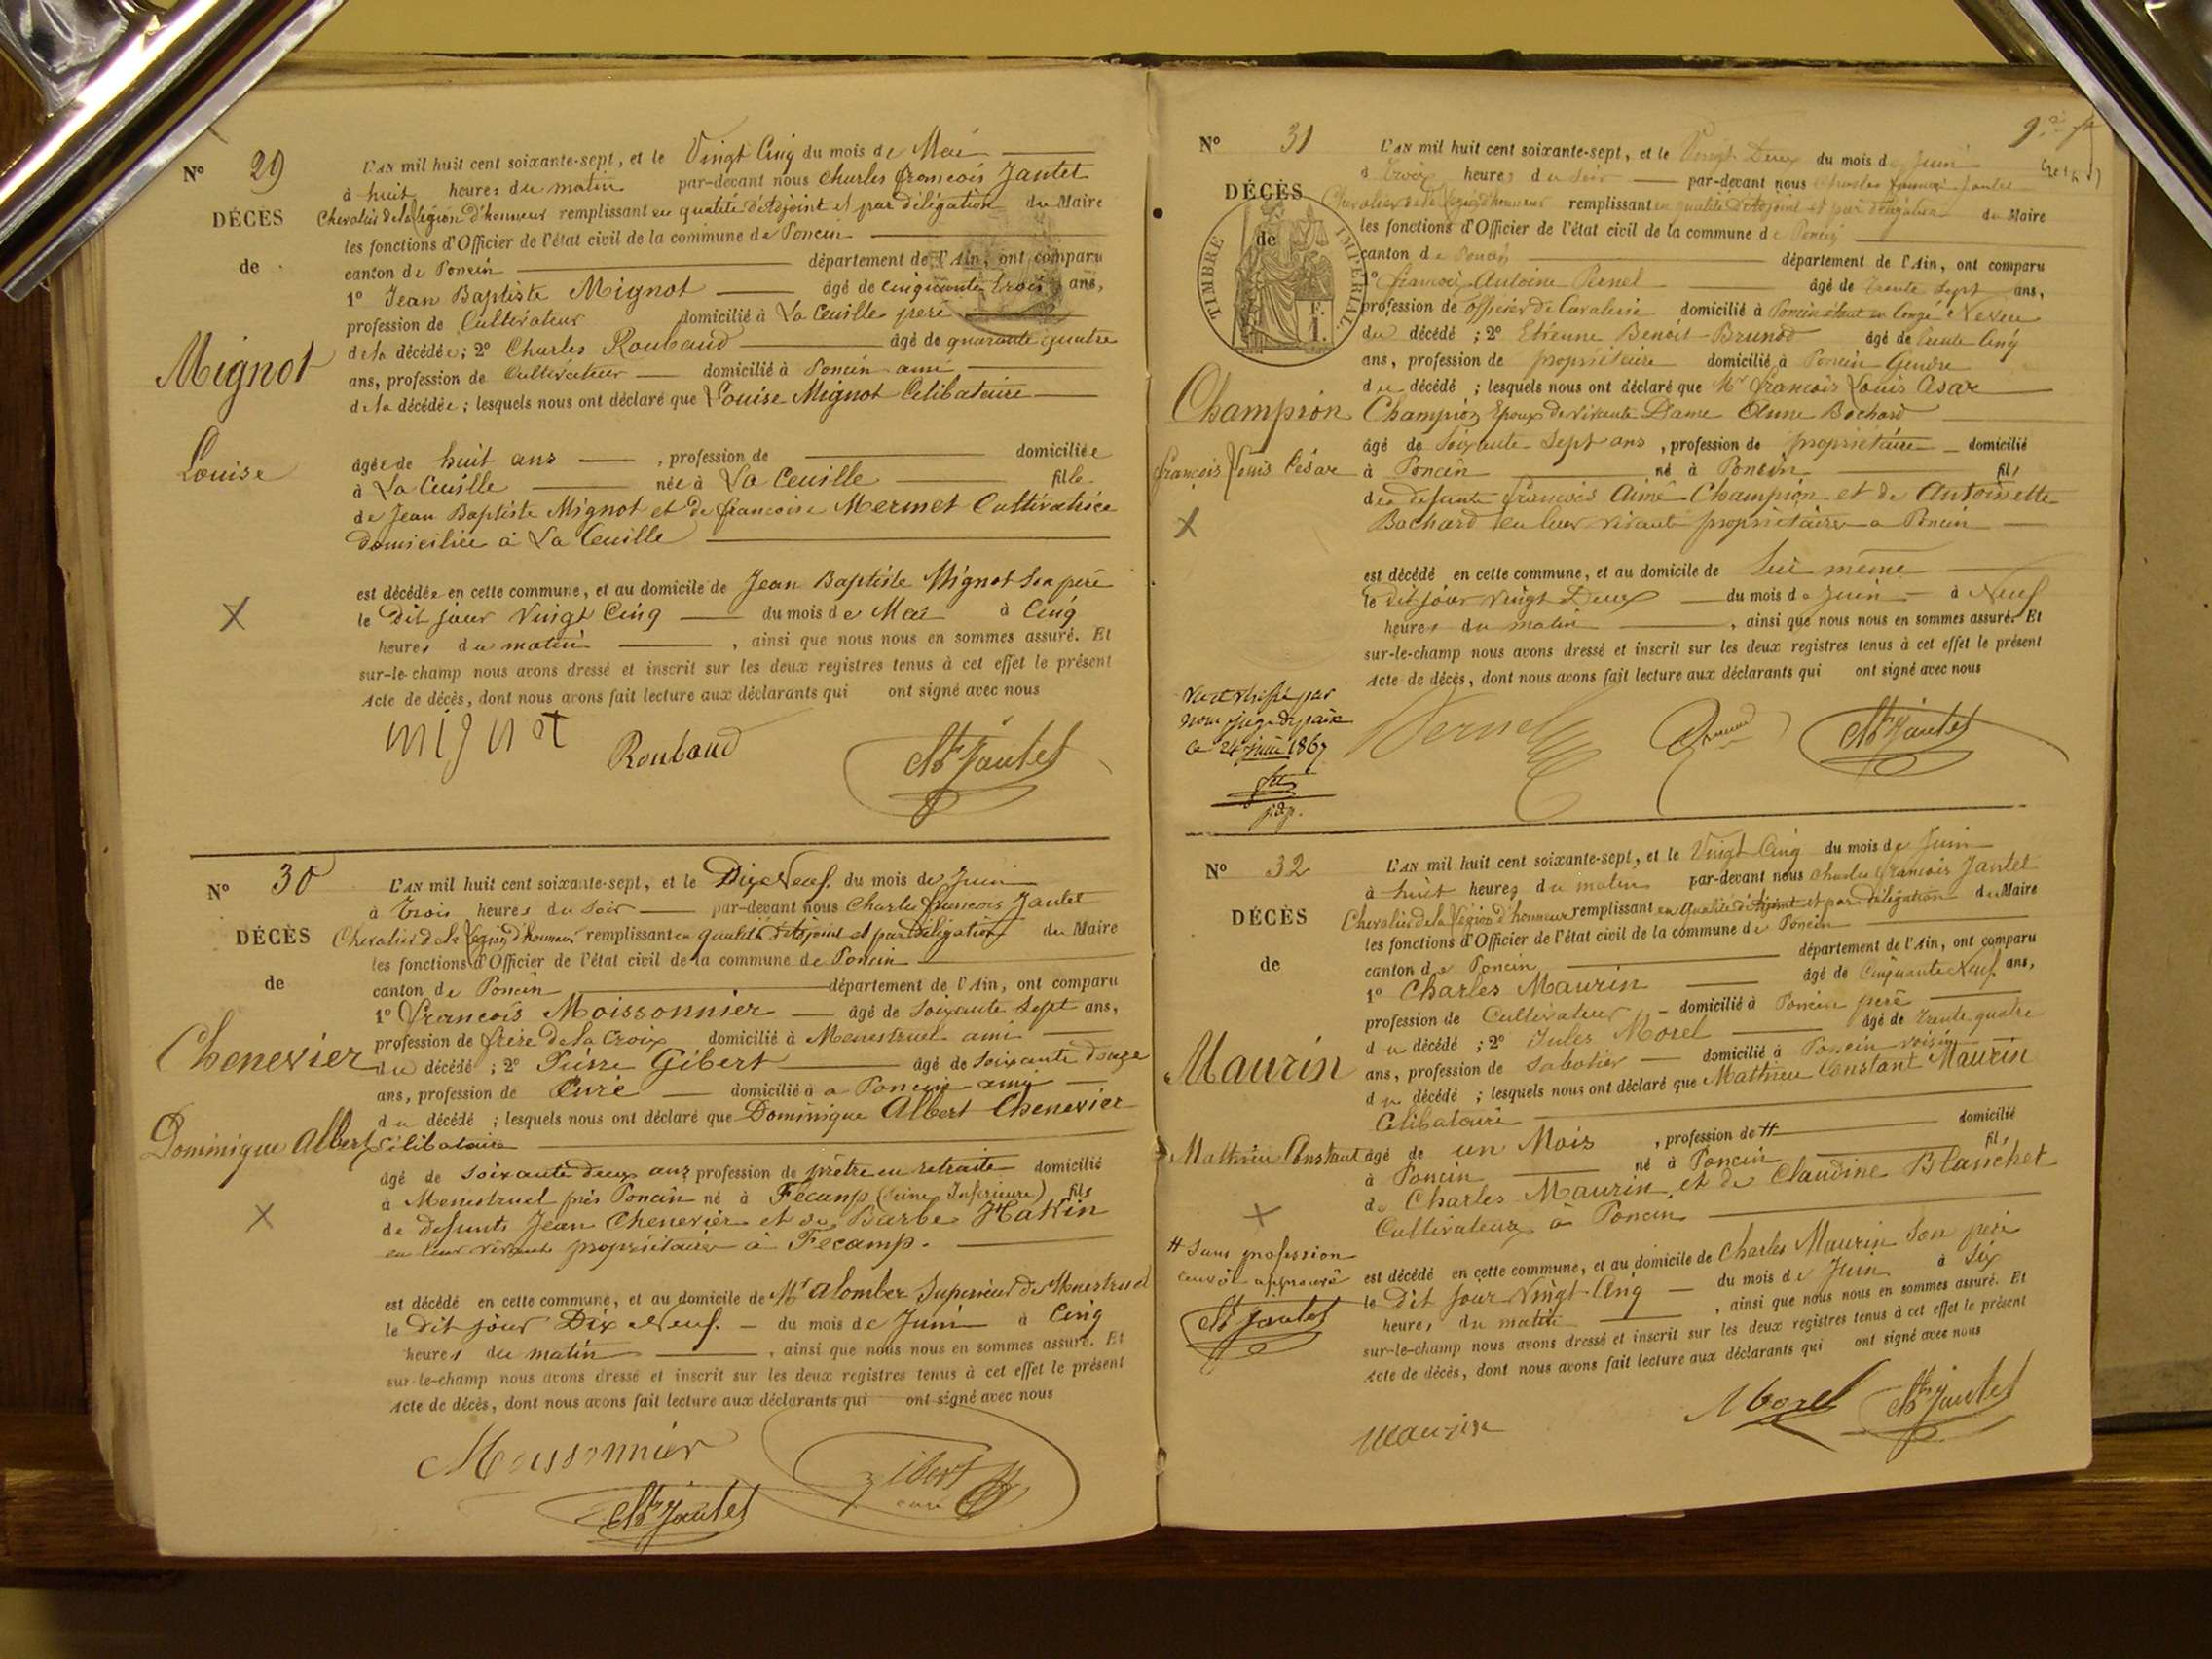 N° 29
DÉCÈS
de
Mignot
Louise
L'AN mil huit cent soixante-sept, et le Vingt Cinq du mois de Mai
à huit heures du matin par-devant nous Charles françois Jantet
Chevalier de la Légion d'honneur remplissant en qualité d'Adjoint et par délégation du Maire
les fonctions d'Officier de l'état civil de la commune de Poncin
canton de Poncin département de l'Ain, ont comparu
1° Jean Baptiste Mignot âgé de cinquante trois ans,
profession de Cultivateur domicilié à La Cueille père
de la décédée ; 2° Charles Roubaud âgé de quarante quatre
ans, profession de Cultivateur domicilié à Poncin ami
de la décédée ; lesquels nous ont déclaré que Louise Mignot Célibataire
âgée de huit ans , profession de domiciliée
à La Cueille née à La Cueille fille
de Jean Baptiste Mignot et de françoise Mermet Cultivatrice
domiciliée à La Cueille
est décédée en cette commune, et au domicile de Jean Baptiste Mignot Son père
le Dit jour Vingt Cinq du mois de Mai à Cinq
heures du matin , ainsi que nous nous en sommes assuré. Et
sur-le-champ nous avons dressé et inscrit sur les deux registres tenus à cet effet le présent
Acte de décès, dont nous avons fait lecture aux déclarants qui ont signé avec nous
mignot Roubaud Ch Jantet
N° 30
DÉCÈS
de
Chenevier
Dominique Albert
L'AN mil huit cent soixante-sept, et le Dix Neuf du mois de Juin
à Trois heures du Soir par-devant nous Charles françois Jantet
Chevalier de la Légion d'honneur remplissant en qualité d'Adjoint et par délégation du Maire
les fonctions d'Officier de l'état civil de la commune de Poncin
canton de Poncin département de l'Ain, ont comparu
1° françois Moissonnier âgé de Soixante Sept ans,
profession de frère de la Croix domicilié à Menestruel ami
du décédé ; 2° Pierre Gibert âgé de Soixante douze
ans, profession de Curé domicilié à a Poncin ami
du décédé ; lesquels nous ont déclaré que Dominique Albert Chenevier
Célibataire
âgé de soixante deux ans, profession de prêtre en retraite domicilié
à Menestruel près Poncin né à Fécamp (Seine Inférieure) fils
de defunts Jean Chenevier et de Barbe Hakin
en leur vivant propriétaires à Fécamp.
est décédé en cette commune, et au domicile de Mr Alombez Supérieur de Menestruel
le dit jour Dix Neuf. du mois de Juin à Cinq
heures du matin , ainsi que nous nous en sommes assuré. Et
sur-le-champ nous avons dressé et inscrit sur les deux registres tenus à cet effet le présent
Acte de décès, dont nous avons fait lecture aux déclarants qui ont signé avec nous
Moissonnier Gibert curé
Ch Jantet
N° 31
DÉCÈS
de
TIMBRE IMPÉRIAL
F. 1.
Champion
françois Louis César
L'AN mil huit cent soixante-sept, et le Vingt Deux du mois de Juin
à Trois heures du Soir par-devant nous Charles françois Jantet
Chevalier de la Légion d'honneur remplissant en qualité d'Adjoint et par délégation du Maire
les fonctions d'Officier de l'état civil de la commune de Poncin
canton de Poncin département de l'Ain, ont comparu
1° françois Antoine Pernel âgé de trente Sept ans,
profession de officier de Cavalerie domicilié à Poncin étant en Congé Neveu
du décédé ; 2° Etienne Benoit Brunod âgé de trente Cinq
ans, profession de propriétaire domicilié à Poncin Gendre
du décédé ; lesquels nous ont déclaré que Mr françois Louis César
Champion Epoux de vivante Dame Anne Bochard
âgé de Soixante Sept ans , profession de propriétaire domicilié
à Poncin né à Poncin fils
des defunts françois Aimé Champion et de Antoinette
Bochard en leur vivant propriétaires a Poncin
est décédé en cette commune, et au domicile de lui même
le dit jour Vingt Deux du mois de Juin à Neuf
heures du matin , ainsi que nous nous en sommes assuré. Et
sur-le-champ nous avons dressé et inscrit sur les deux registres tenus à cet effet le présent
Acte de décès, dont nous avons fait lecture aux déclarants qui ont signé avec nous
nous juge de paix
le 24 juin 1867
j.d.p.
Ch Jantet
N° 32
DÉCÈS
de
Maurin
Mathieu Constant
L'AN mil huit cent soixante-sept, et le Vingt Cinq du mois de Juin
à huit heures du matin par-devant nous Charles françois Jantet
Chevalier de la Légion d'honneur remplissant en Qualité d'Adjoint et par délégation du Maire
les fonctions d'Officier de l'état civil de la commune de Poncin
canton de Poncin département de l'Ain, ont comparu
1° Charles Maurin âgé de Cinquante Neuf ans,
profession de Cultivateur domicilié à Poncin père
du décédé ; 2° Jules Morel âgé de trente quatre
ans, profession de Sabotier domicilié à Poncin voisin
du décédé ; lesquels nous ont déclaré que Mathieu Constant Maurin
Célibataire
âgé de un Mois , profession de # domicilié
à Poncin né à Poncin fils
de Charles Maurin et de Claudine Blanchet
Cultivateurs à Poncin
# Sans profession
renvoi approuvé
Ch Jantet
est décédé en cette commune, et au domicile de Charles Maurin Son père
le Dit jour Vingt Cinq du mois de Juin à Six
heures du matin , ainsi que nous nous en sommes assuré. Et
sur-le-champ nous avons dressé et inscrit sur les deux registres tenus à cet effet le présent
Acte de décès, dont nous avons fait lecture aux déclarants qui ont signé avec nous
Maurin Morel Ch Jantet